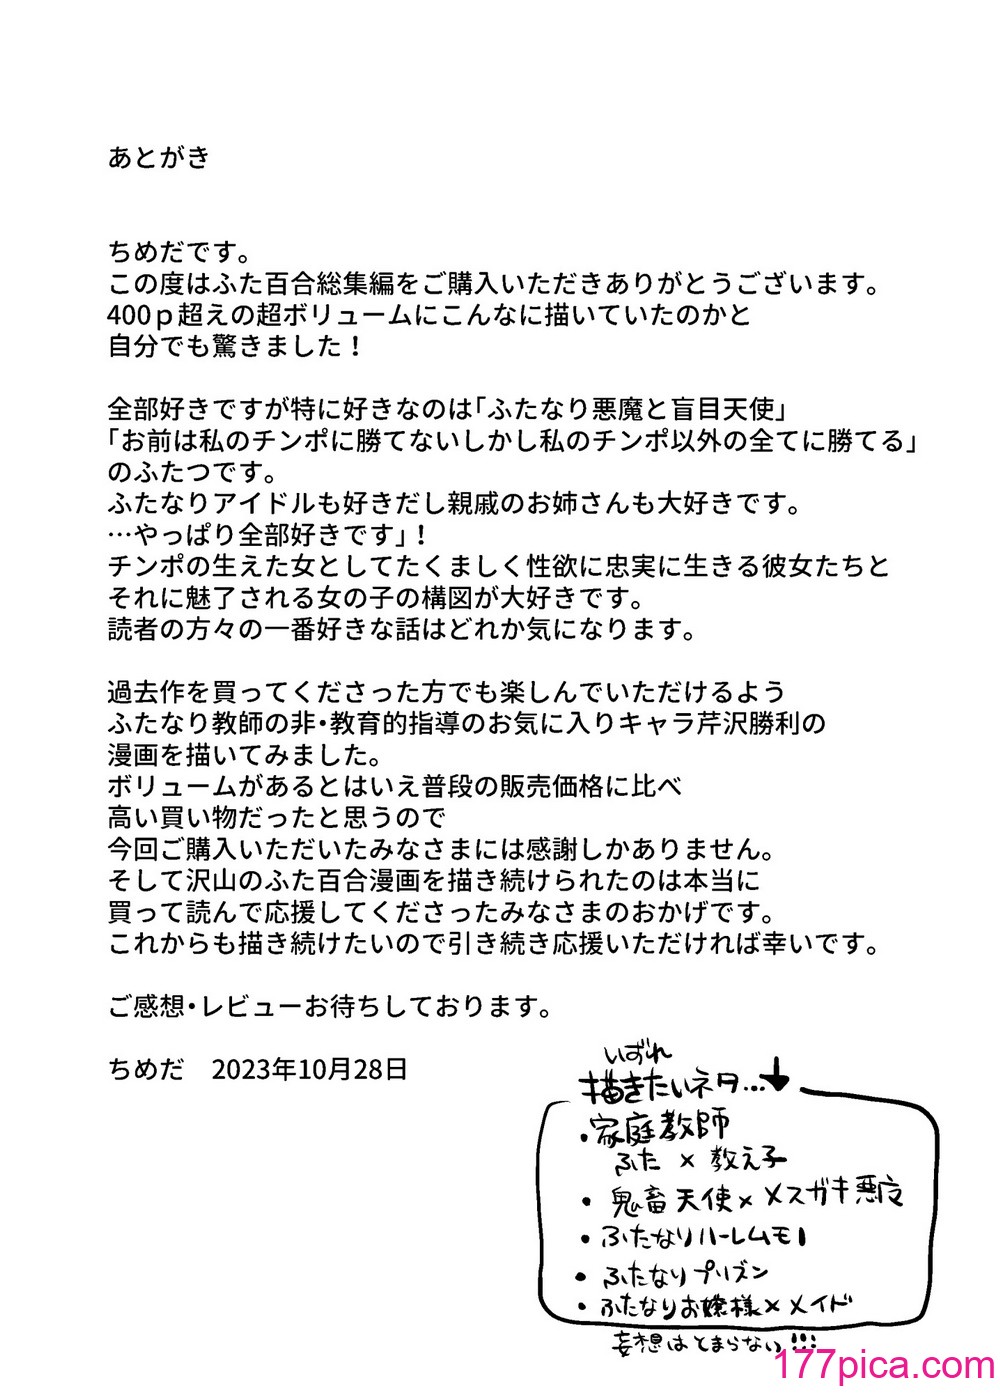 あとがき
ちめだです。
この度はふた百合総集編をご購入いただきありがとうございます。
400ｐ超えの超ボリュームにこんなに描いていたのかと
自分でも驚きました！
全部好きですが特に好きなのは「ふたなり悪魔と盲目天使」
「お前は私のチンポに勝てないしかし私のチンポ以外の全てに勝てる」
のふたつです。
ふたなりアイドルも好きだし親戚のお姉さんも大好きです。
…やっぱり全部好きです」！
チンポの生えた女としてたくましく性欲に忠実に生きる彼女たちと
それに魅了される女の子の構図が大好きです。
読者の方々の一番好きな話はどれか気になります。
過去作を買ってくださった方でも楽しんでいただけるよう
ふたなり教師の非・教育的指導のお気に入りキャラ芹沢勝利の
漫画を描いてみました。
ボリュームがあるとはいえ普段の販売価格に比べ
高い買い物だったと思うので
今回ご購入いただいたみなさまには感謝しかありません。
そして沢山のふた百合漫画を描き続けられたのは本当に
買って読んで応援してくださったみなさまのおかげです。
これからも描き続けたいので引き続き応援いただければ幸いです。
ご感想・レビューお待ちしております。
ちめだ　2023年10月28日
いずれ
描きたいネタ…↓
・家庭教師
ふた×教え子
・鬼畜天使×メスガキ悪魔
・ふたなりハーレムモノ
・ふたなりプリズン
・ふたなりお嬢様×メイド
妄想はとまらない!!!
177pica.com